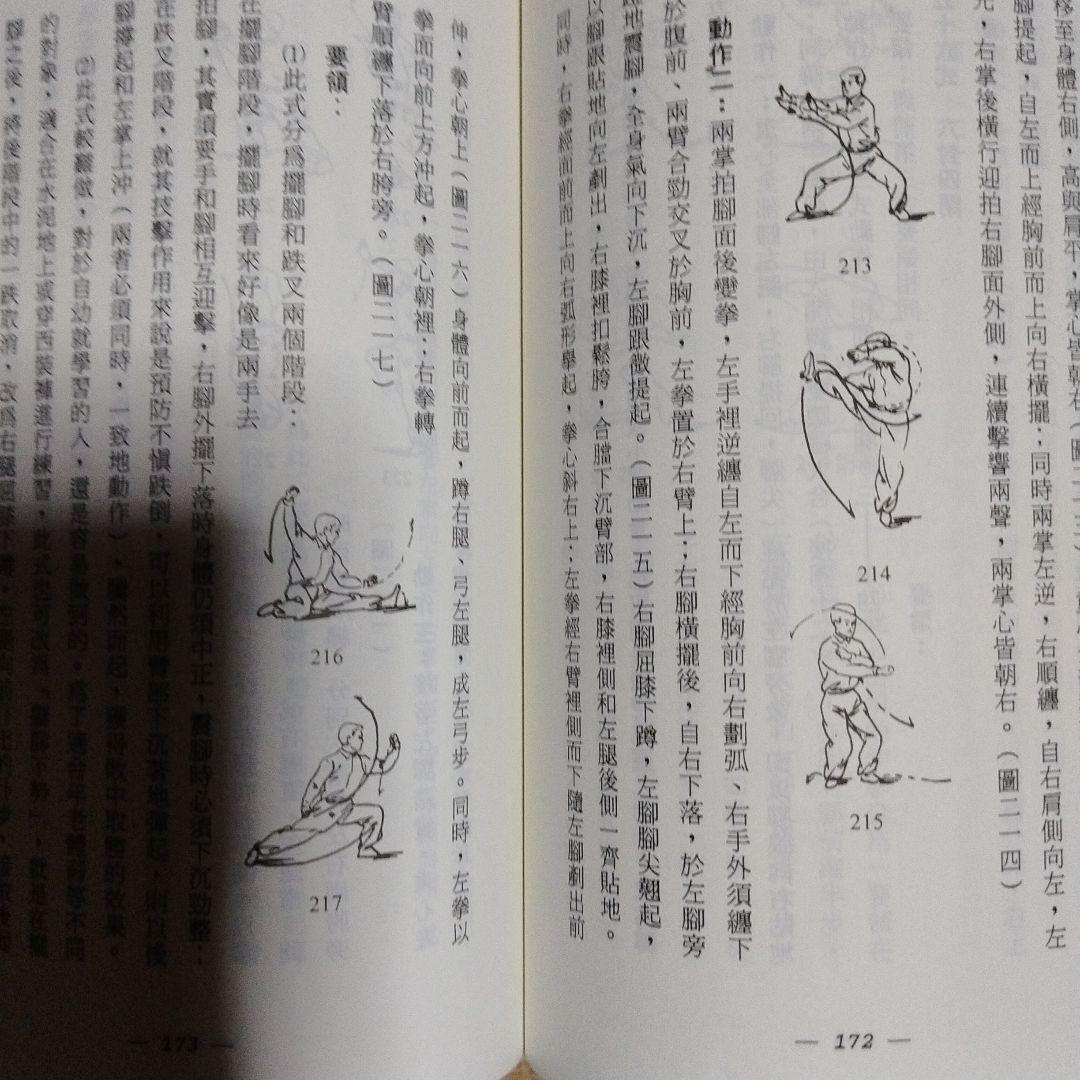 移至身體右側，高與肩平，掌心皆朝右
腳提起，自左而上經胸前而上向右橫擺；同時兩掌左逆，右順纏，自右肩側向左，左
右掌後橫行迎拍右腳面外側，連續擊響兩聲，兩掌心皆朝右。（圖二一四）
動作二：兩掌拍腳面後變拳，左手裡逆纏自左而下經胸前向右劃弧、右手外須纏下
於腹前、兩臂合勁交叉於胸前，左拳置於右臂上；右腳橫擺後，自右下落，於左腳旁
地震腳，全身氣向下沉，左腳跟微提起。（圖二一五）右腳屈膝下蹲，左腳腳尖翹起，
以腳跟貼地向左剷出，右膝裡扣鬆胯，合膅下沉臂部，右膝裡側和左腿後側一齊貼地。
同時，右拳經面前而上向右弧形舉起，拳心斜右上；左拳經右臂裡側而下隨左腳剷出前
213
214
215
— 172 —
伸，拳心朝上（圖二一六）身體向前而起，蹲右腿、弓左腿，成左弓步。同時，左拳以
拳面向前上方沖起，拳心朝裡；右拳轉
臂順纏下落於右胯旁。（圖二一七）
要領：
⑴此式分為擺腳和跌叉兩個階段：
在擺腳階段，擺腳時看來好像是兩手去
拍腳，其實須要手和腳相互迎擊，右腳外擺下落時身體仍須中正，震腳時必須下沉勁整；
在跌叉階段，就其技擊作用來說是預防不慎跌倒，可以利用臀部下沉著地彈起，則以後
腳撐起和左掌上沖（兩者必須同時，一致地動作），驟然而起，獲得敗中取勝的效果。
⑵此式較經做，對於自幼就學習的人，還是容易做到的。為了適合年老體弱等不同
的對象，適合在水泥地上或穿西裝褲進行練習，此式也可改為「擺腳下勢」，就是在擺
腳之後，將後階段中的一跌取消，改為右腿屈膝下蹲，
216
217
— 173 —